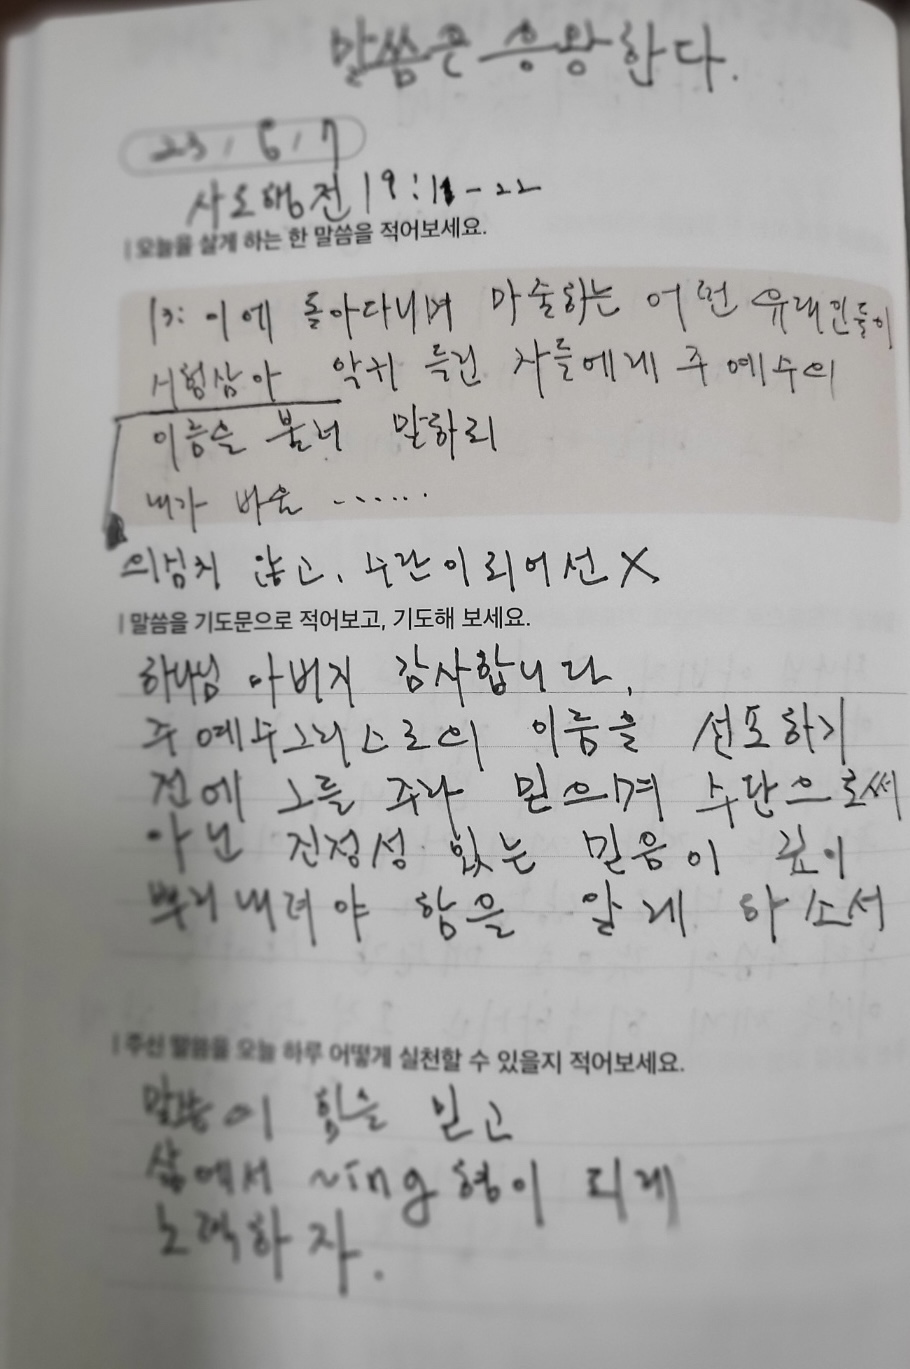 말씀은 흥왕한다.
23, 6, 7
사도행전 19:11-22
오늘을 살게 하는 한 말씀을 적어보세요.
13: 이에 돌아다니며 마술하는 어떤 유대인들이
시험삼아 악귀 들린 자들에게 주 예수의
이름을 불러 말하되
내가 바울 ......
의심치 않고, 수단이 되어선 X
말씀을 기도문으로 적어보고, 기도해 보세요.
하나님 아버지 감사합니다,
주 예수그리스도의 이름을 선포하기
전에 그를 주라 믿으며 수단으로써
아닌 진정성 있는 믿음이 깊이
뿌리내려야 함을 알게 하소서
주신 말씀을 오늘 하루 어떻게 실천할 수 있을지 적어보세요.
말씀이 힘을 믿고
삶에서 ~ing형이 되게
노력하자.